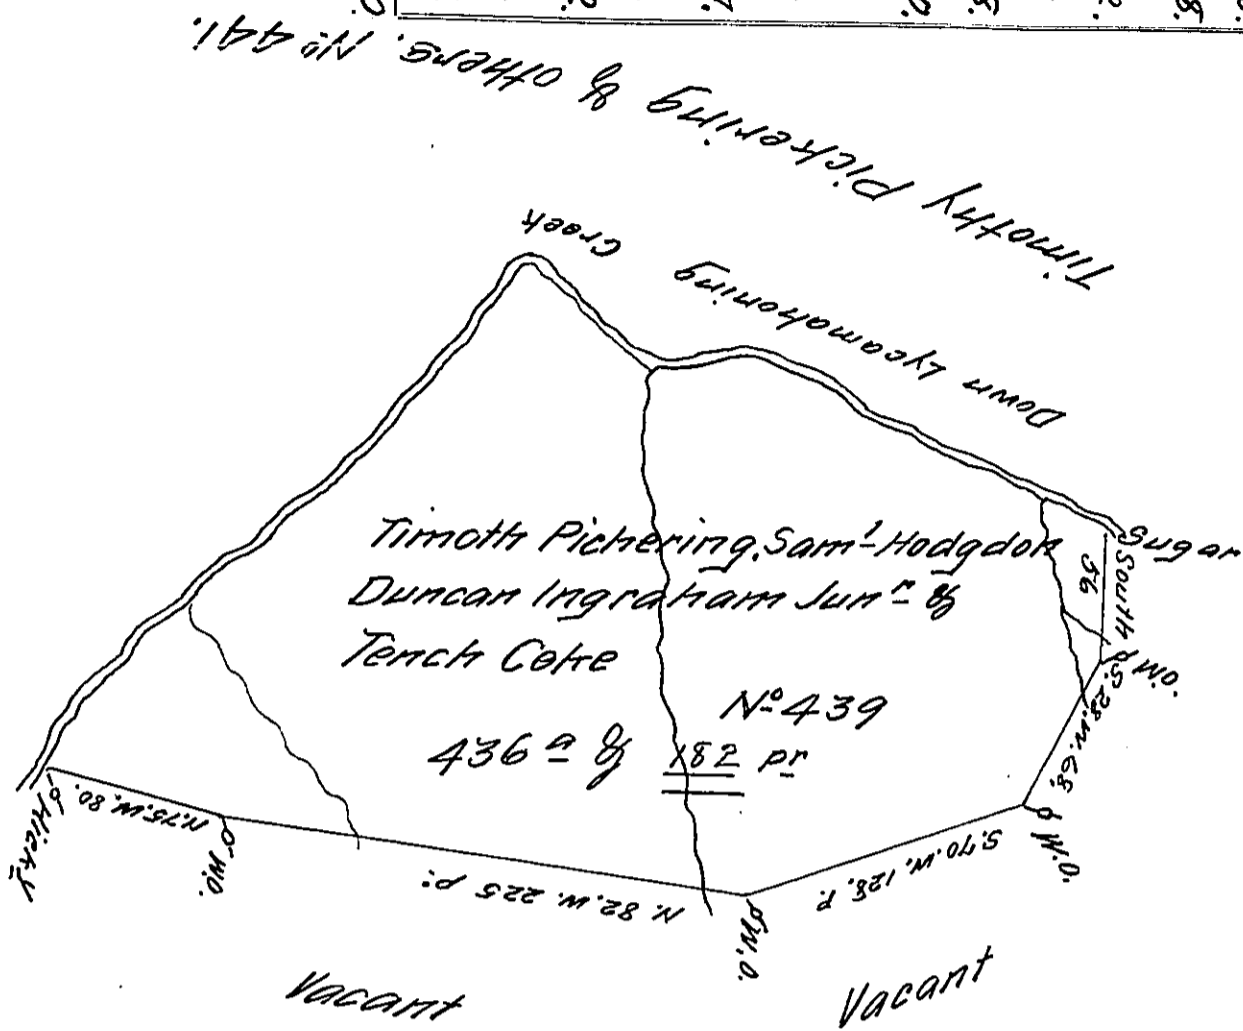 Timothy Pickering & others. No 441.
Down Lycamahoning Creek
Timoth Pichering, Saml Hodgdon
Duncan Ingraham Junr &
Tench Coke
No 439
436 a & 182 pr
Sugar
South
56
W.O.
S.28.W.68.
W.O.
S.70.W. 128. P.
W.O.
N. 82. W. 225 p:
W.O.
N.75.W. 80.
Hicky
Vacant
Vacant